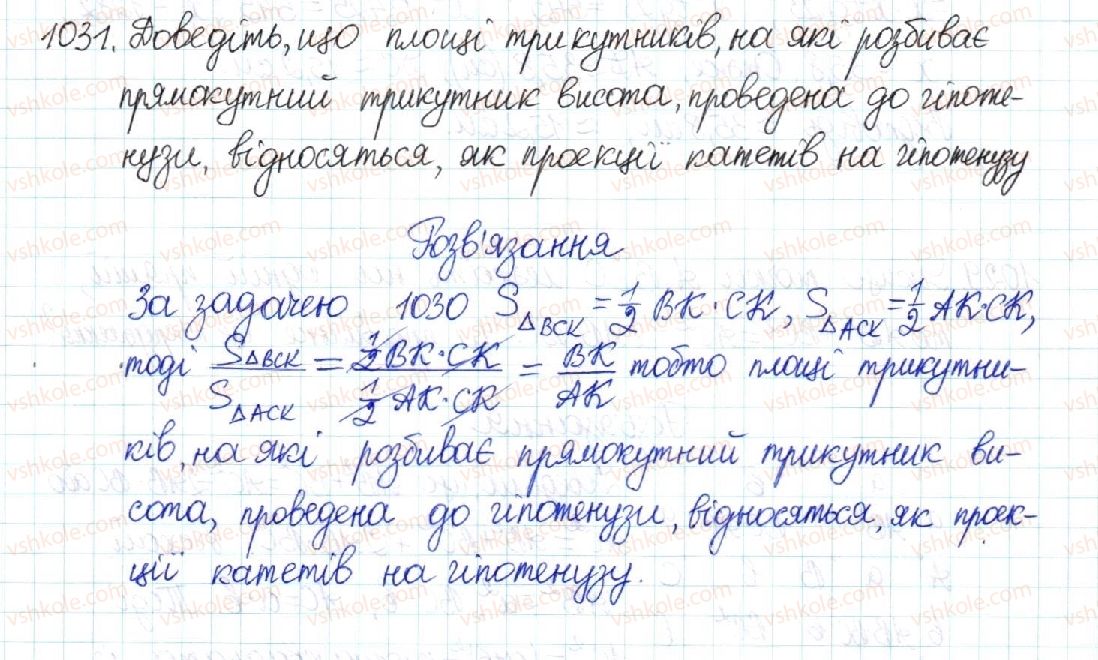 1031. Доведіть, що площі трикутників, на які розбиває
прямокутний трикутник висота, проведена до гіпоте-
нузи, відносяться, як проекції катетів на гіпотенузу
Розв'язання
За задачею 1030 S△BCK = 1/2 BK · CK, S△ACK = 1/2 AK · CK,
тоді S△BCK / S△ACK = 1/2 BK · CK / 1/2 AK · CK = BK / AK тобто площі трикутни-
ків, на які розбиває прямокутний трикутник ви-
сота, проведена до гіпотенузи, відносяться, як проек-
ції катетів на гіпотенузу.